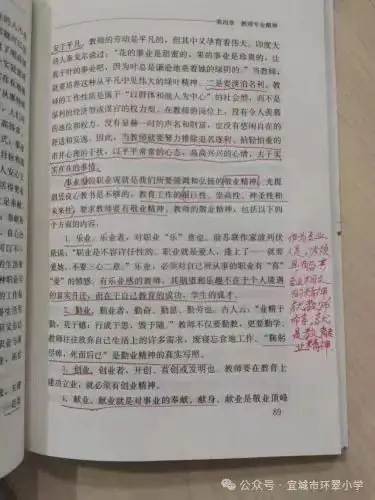 第四章 教师专业精神
安于平凡。教师的劳动是平凡的，但其中又孕育着伟大。印度大
诗人泰戈尔说过，“花的事业是甜蜜的，果的事业是珍贵的，让
我干叶的事业吧，因为叶总是谦逊地垂着她的绿荫的。”当教师，
就要培养这种从平凡中见伟大的绿叶精神。二是要淡泊名利。教
师的工作性质是属于“以群体和他人为中心”的社会型，而不是
谋利的经济型或谋官的权力型。在教师的岗位上，没有令人羡慕
的地位和权力，没有显赫一时的声名和财富，也没有悠闲自在的
舒适和安逸。因此，当教师就要努力排除追名逐利、姑较怕亚的
市井心理的干扰，以平平常常的心态，高高兴兴的心情，去干实
实在在的事情。
敬业的职业观就是我们所要强调和弘扬的敬业精神。光挑
担凭良心教书是不够的。教育工作的艰巨性、崇高性、神圣性和
未来性，要求教师要有敬业精神。教师的敬业精神，包括以下四
个方面的内容。
1. 乐业。乐业者，对职业“乐”意也。前苏联作家波列伏
依说，“职业是不容许任性的。职业就是爱人，逢上了——就要
爱她，不要三心二意。”乐业，必须对自己所从事的职业有“喜”
“爱”的情感。有乐业感的教师，其期望和乐趣不在于个人境遇
的富实升迁，而在于自己教育的成功，学生的成才。
2. 勤业。勤业者，勤奋、勤恳、勤劳也。古人云：“业精于
勤，荒于嬉，行成于思，毁于随。”教师不仅要勤教，更要勤学。
教师往往放弃自己生活上的许多需求，废寝忘食地工作。“鞠躬
尽瘁，死而后已”是勤业精神的真实写照。
3. 创业。创业者，开创、首创或发明也。教师要在教育上
建功立业，就必须有创业精神。
4. 献业。献业就是对事业的奉献、献身。献业是敬业顶峰
89
作为专业
人员，必须
具有与专
业相
的精神
就教师
而言，就
是教师专
业精神
公众号·宜城市环翠小学